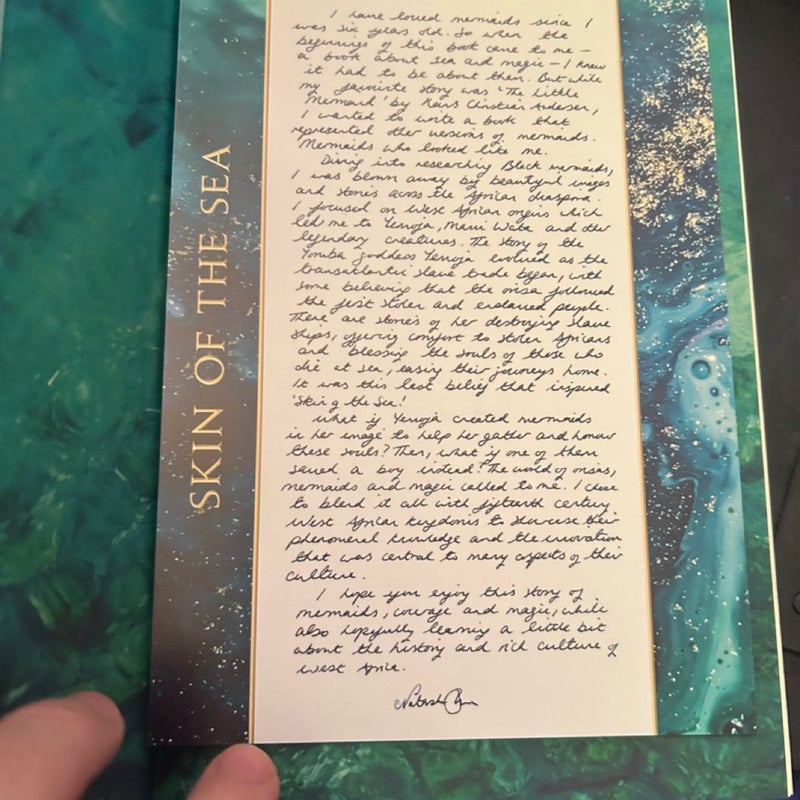 SKIN OF THE SEA
I have loved mermaids since I
was six years old. So when the
beginnings of this book came to me –
a book about sea and magic – I knew
it had to be about them. But while
my favourite story was 'The Little
Mermaid' by Hans Christian Andersen,
I wanted to write a book that
represented other versions of mermaids.
Mermaids who looked like me.
Diving into researching Black mermaids,
I was blown away by beautiful images
and stories across the African diaspora.
I focused on West African origins which
led me to Yemoja, Mami Wata and other
legendary creatures. The story of the
Yoruba goddess Yemoja evolved as the
transatlantic slave trade began, with
some believing that the orisa followed
the first stolen and enslaved people.
There are stories of her destroying slave
ships, offering comfort to stolen Africans
and blessing the souls of those who
die at sea, easing their journeys home.
It was this last belief that inspired
'Skin of the Sea.'
What if Yemoja created mermaids
in her image to help her gather and honour
these souls? Then, what if one of them
saved a boy instead? The world of orisas,
mermaids and magic called to me. I chose
to blend it all with fifteenth century
West African kingdoms to showcase their
phenomenal knowledge and the innovation
that was central to many aspects of their
culture.
I hope you enjoy this story of
mermaids, courage and magic, while
also hopefully learning a little bit
about the history and rich culture of
West Africa.